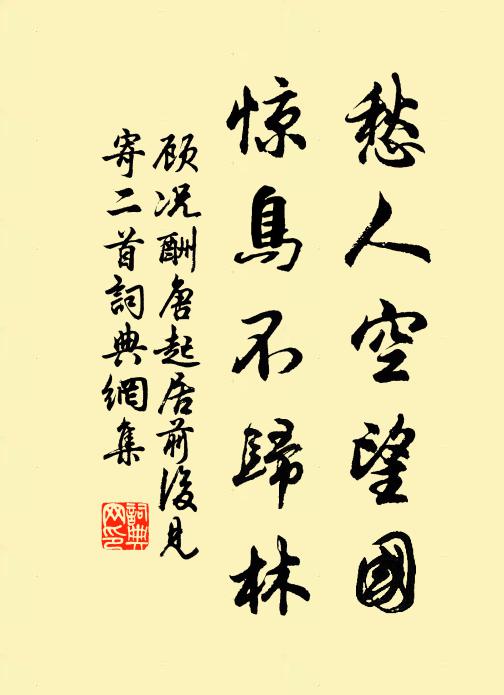 愁人空望國
惊鳥不歸林
顾况酬唐起居前後見
寄二首詞典網集
詞典
网印